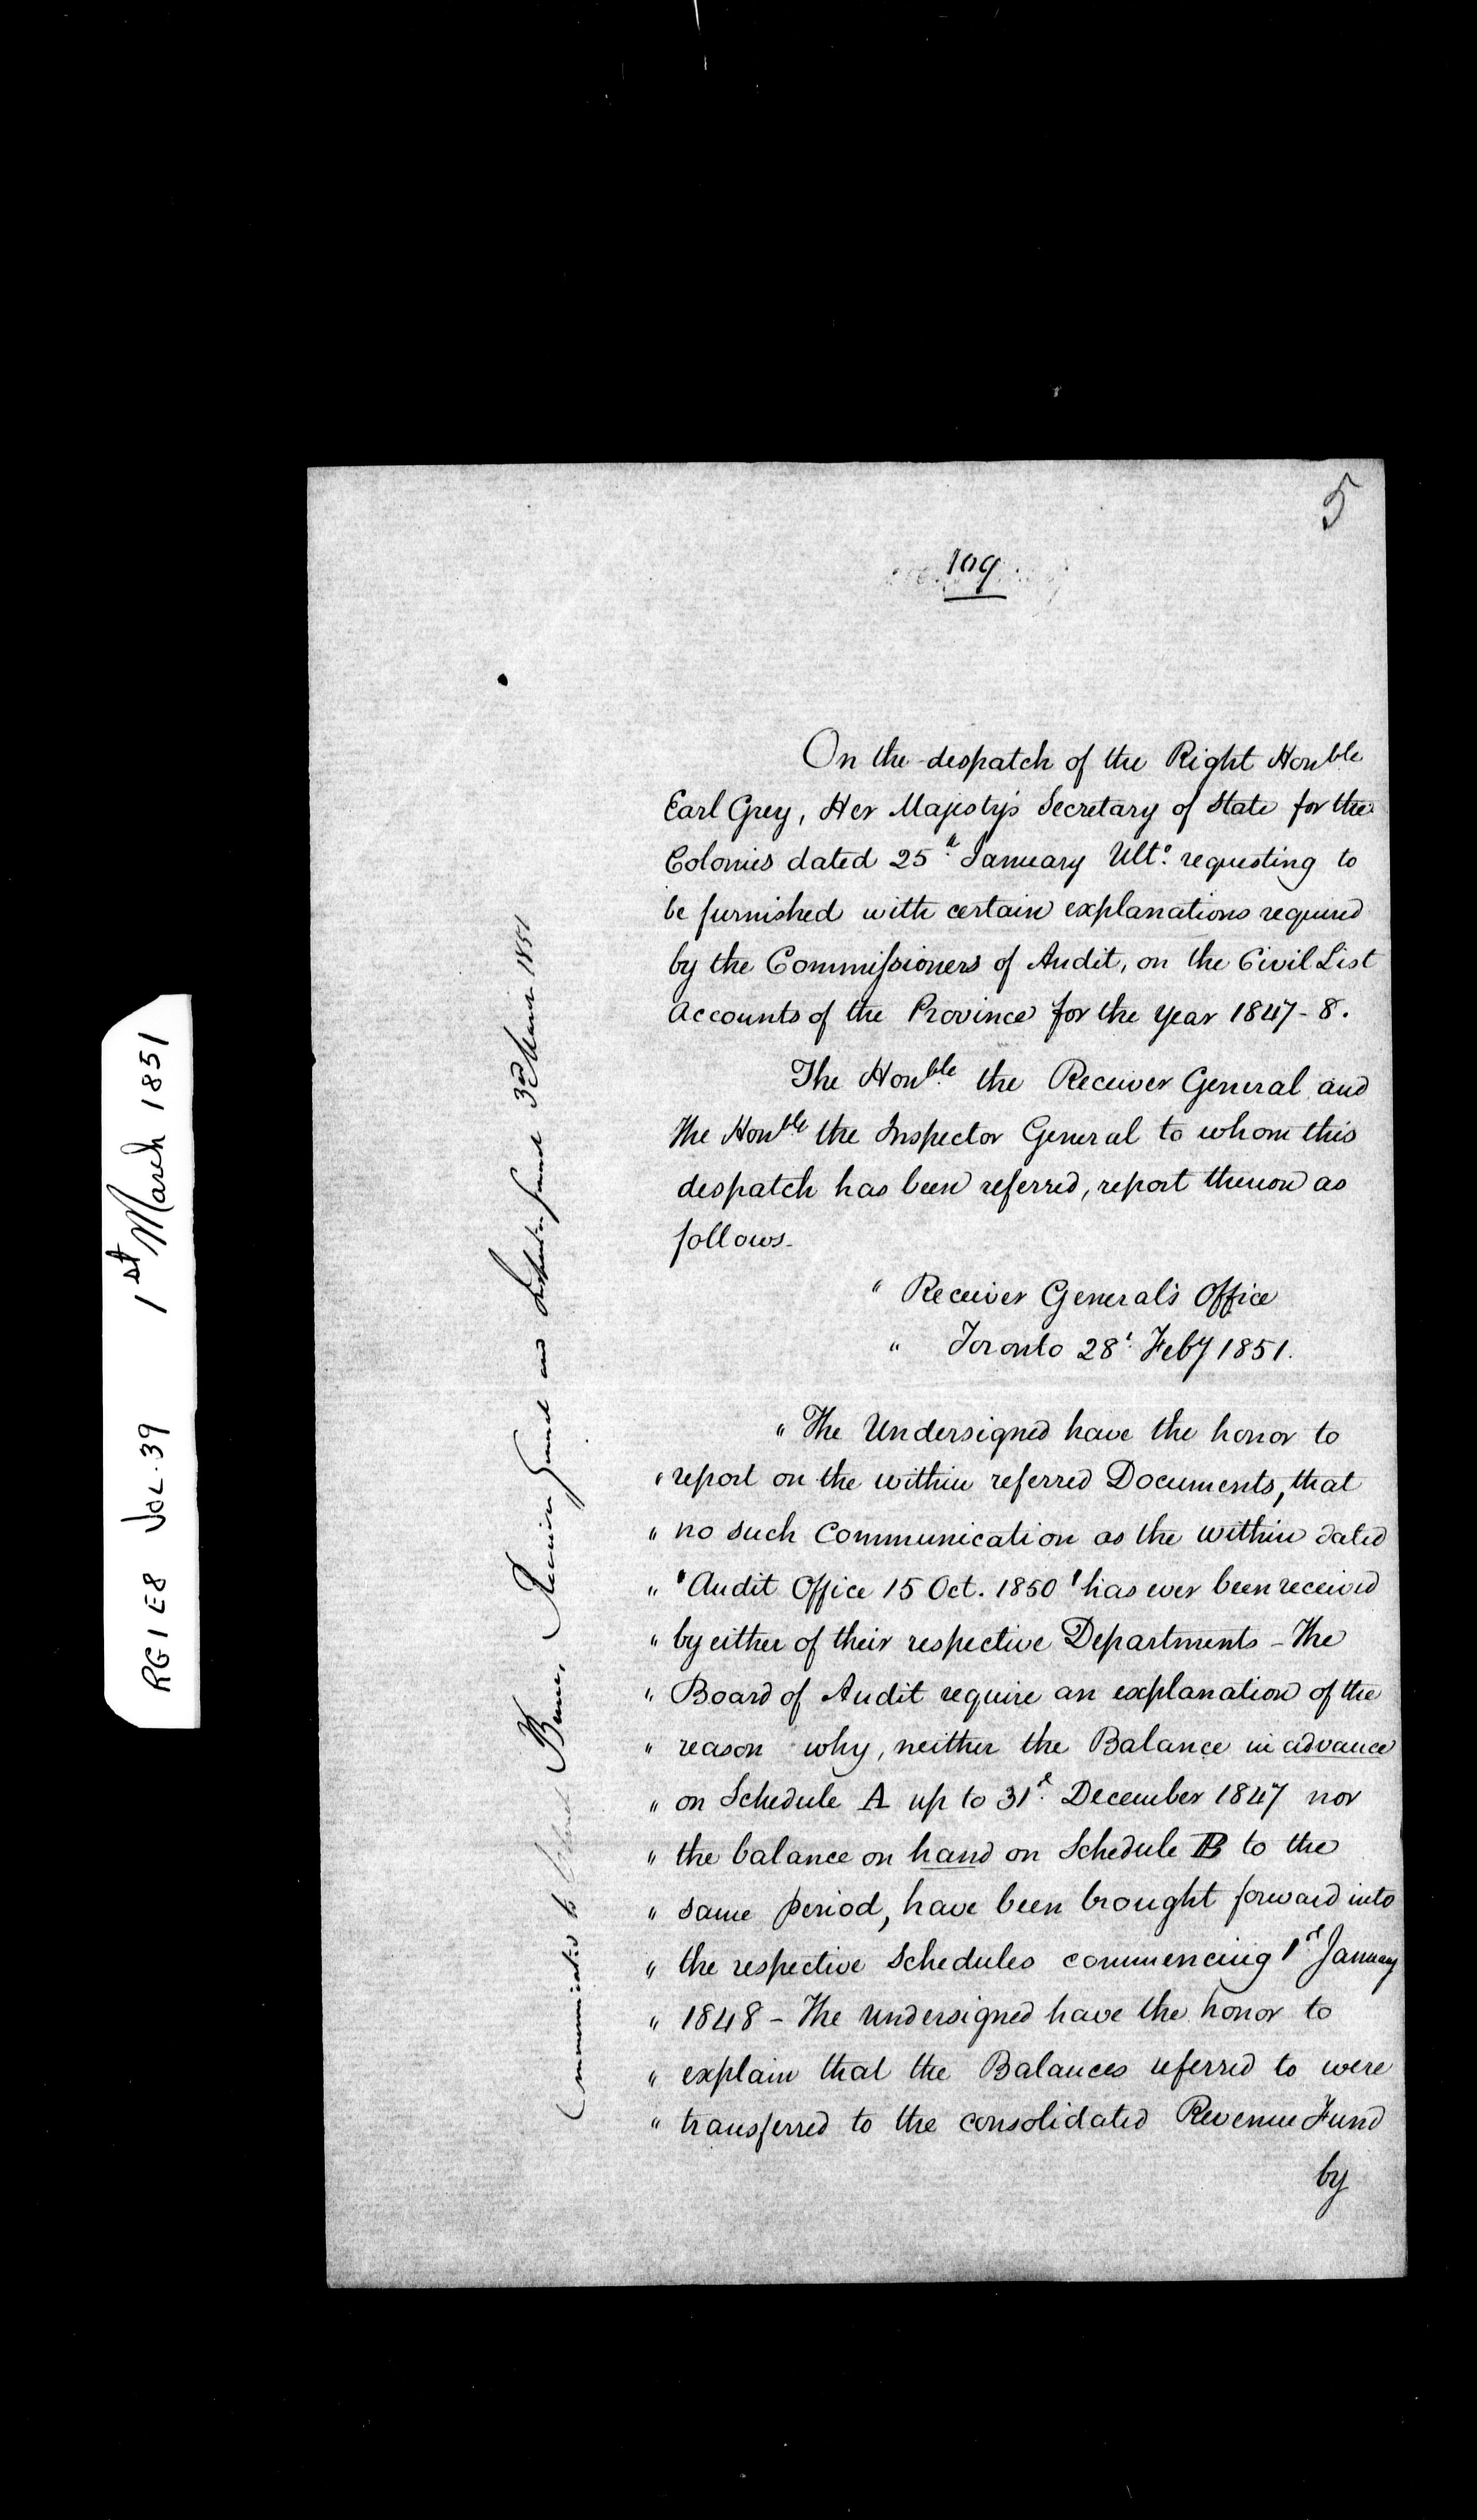 RG1 E8 VOL. 39 1st March 1851
5
109
On the despatch of the Right Honble
Earl Grey, Her Majesty's Secretary of State for the
Colonies dated 25th January Ulto. requesting to
be furnished with certain explanations required
by the Commissioners of Audit, on the Civil List
Accounts of the Province for the year 1847-8.
The Honble. the Receiver General and
The Honble the Inspector General to whom this
despatch has been referred, report thereon as
follows-
" Receiver General's Office
" Toronto 28t. Feby 1851.
" The Undersigned have the honor to
" report on the within referred Documents, that
" no such Communication as the within dated
" 'Audit Office 15 Oct. 1850' has ever been received
" by either of their respective Departments - The
" Board of Audit require an explanation of the
" reason why, neither the Balance in advance
" on Schedule A up to 31st. December 1847 nor
" the balance on hand on Schedule B to the
" same period, have been brought forward into
" the respective Schedules commencing 1st January
" 1848 - The Undersigned have the honor to
" explain that the Balances referred to were
" transferred to the consolidated Revenue Fund
by
Communicated to Colonel Bruce, Receiver General and Inspector General 3rd March 1851